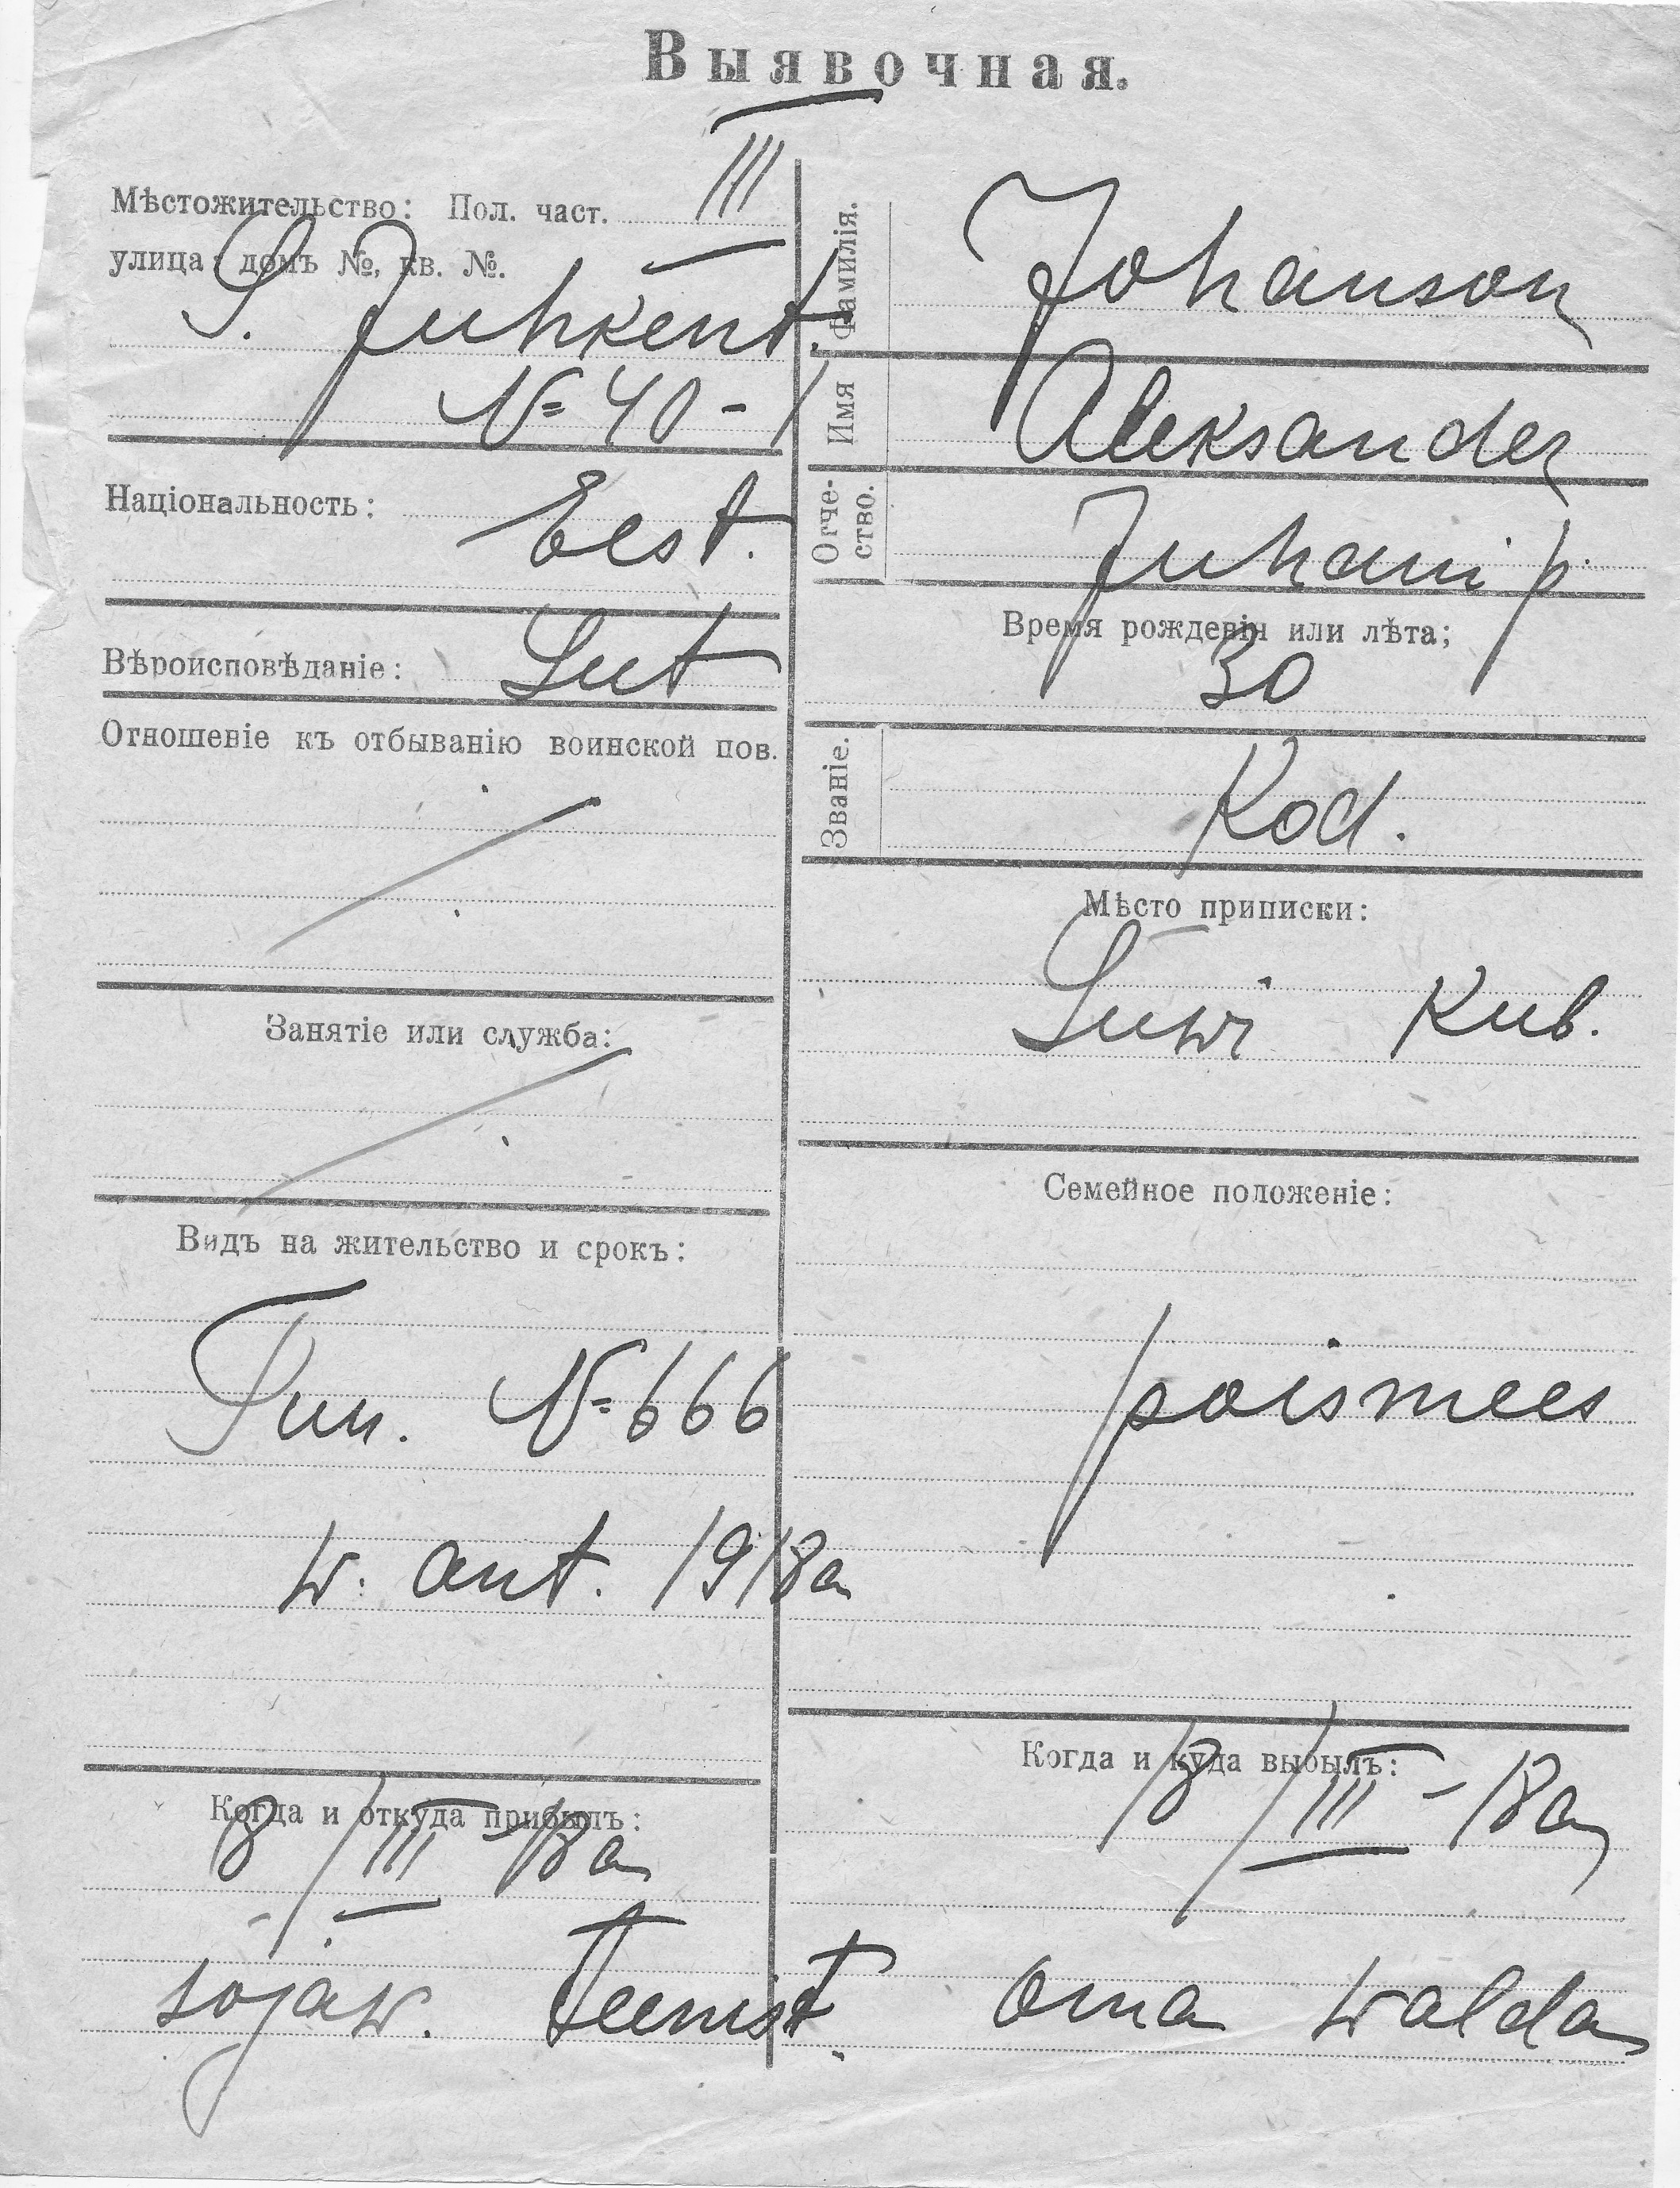 Выявочная.
Мѣстожительство: Пол. част. III
улица, домъ №, кв. №.
S. Juhkent.
№ 40-1
Національность: Eest.
Вѣроисповѣданіе: Lut
Отношеніе къ отбыванію воинской пов.
Занятіе или служба:
Видъ на жительство и срокъ:
№ 666
w. ant. 1918a
Когда и откуда прибылъ:
8/III-18a
sõjaw. teenist.
Фамилія. Johanson
Имя Aleksander
Отче-
ство. Juhani p.
Время рожденія или лѣта;
30
Званіе. Kod.
Мѣсто приписки:
Kub.
Семейное положеніе:
poismees
Когда и куда выбылъ:
18/III-18a
oma walda